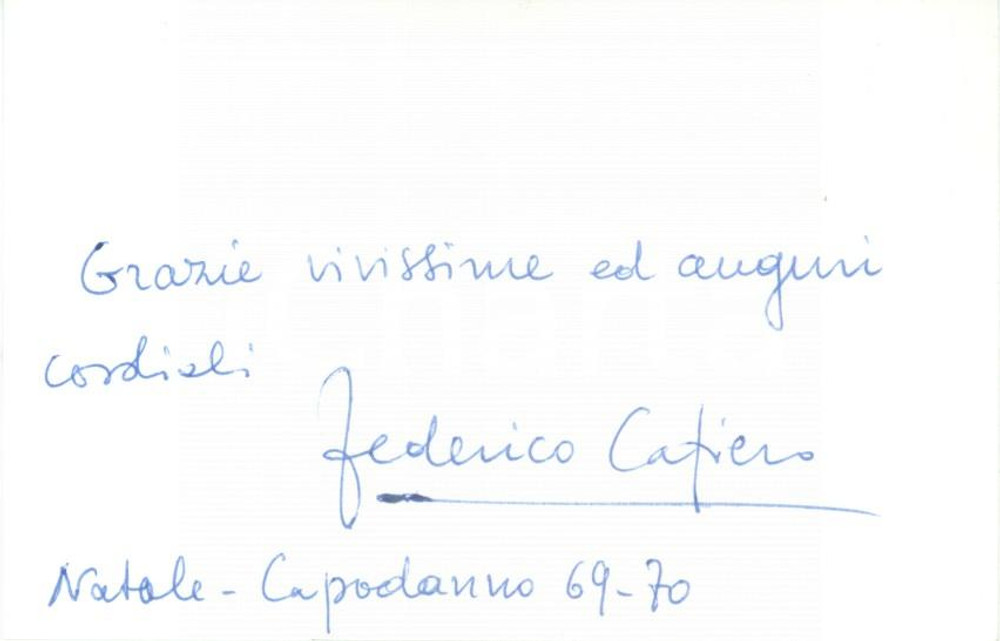 Grazie vivissime ed auguri
cordiali
Federico Cafiero
Natale - Capodanno 69-70